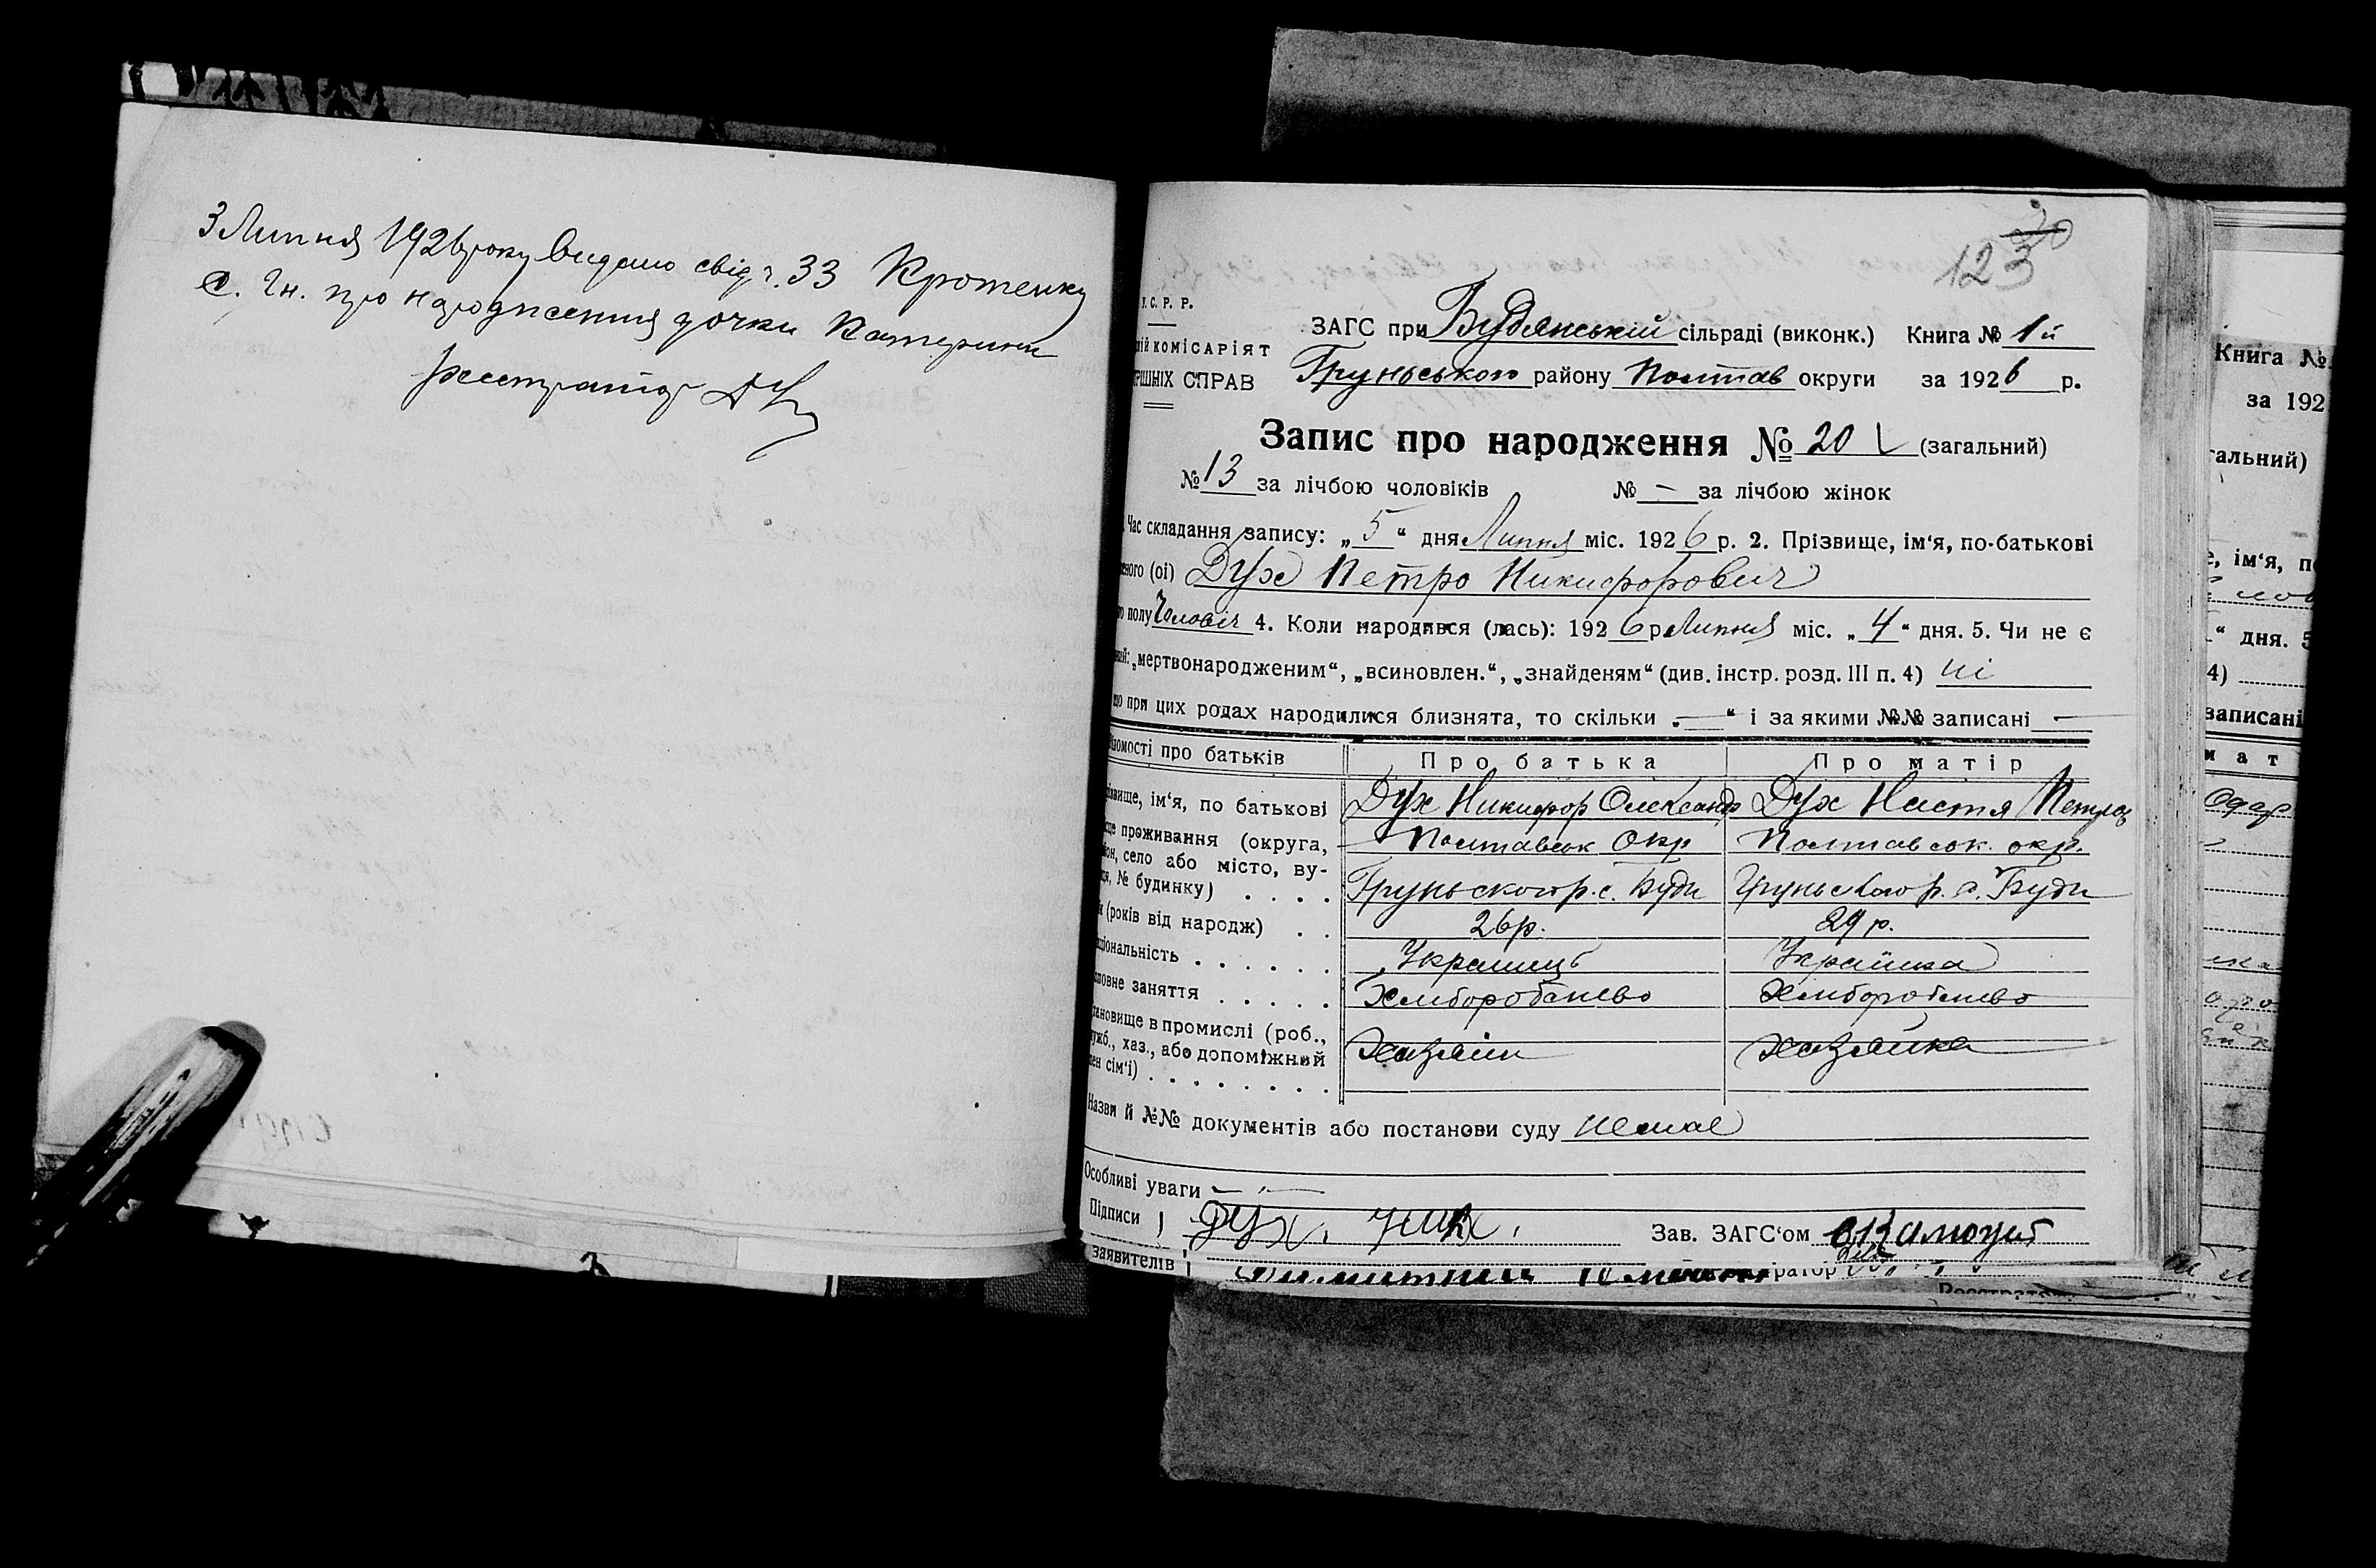 3 Липня 1926 року видано свід. ч. 33 Кротенку
С. Гн. про народження дочки Катерини
реєстратор
30
123
У. С. Р. Р.
КОМІСАРІЯТ
СПРАВ
ЗАГС при Будянській сільраді (виконк.) Книга № 1й
Груньського району Полтав округи за 1926 р.
Запис про народження № 20 (загальний)
№ 13 за лічбою чоловіків № — за лічбою жінок
Час складання запису: „5“ дня Липня міс. 1926 р. 2. Прізвище, ім‘я, по-батькові
(ої) Дух Петро Никифорович
полу Чоловіч 4. Коли народився (лась): 1926 р Липня міс. „4“ дня. 5. Чи не є
„мертвонародженим“, „всиновлен.“, „знайденям“ (див. інстр. розд. III п. 4) ні
при цих родах народилися близнята, то скільки „—“ і за якими №№ записані —
про батьків Про батька Про матір
ім‘я, по батькові Дух Никифор Олександр Дух Настя Петров
проживання (округа, Полтавськ Окр Полтавськ. окр.
село або місто, ву-
№ будинку) . . . . Груньского р. с. Буди Груньского р. с. Буди
(років від народж) . . 26 р. 29 р.
. . . . . . Українець Українка
заняття . . . . . Хліборобство Хліборобство
в промислі (роб.,
хаз., або допоміжний Хазяїн хазяйка
сім‘ї) . . . . . . . .
Назви й №№ документів або постанови суду немає
Особливі уваги —
Підписи Дух. Зав. ЗАГС‘ом
заявителів
Книга №
за 192
гальний)
ім‘я, п
“ дня. 5
4)
записані
мат
Одар